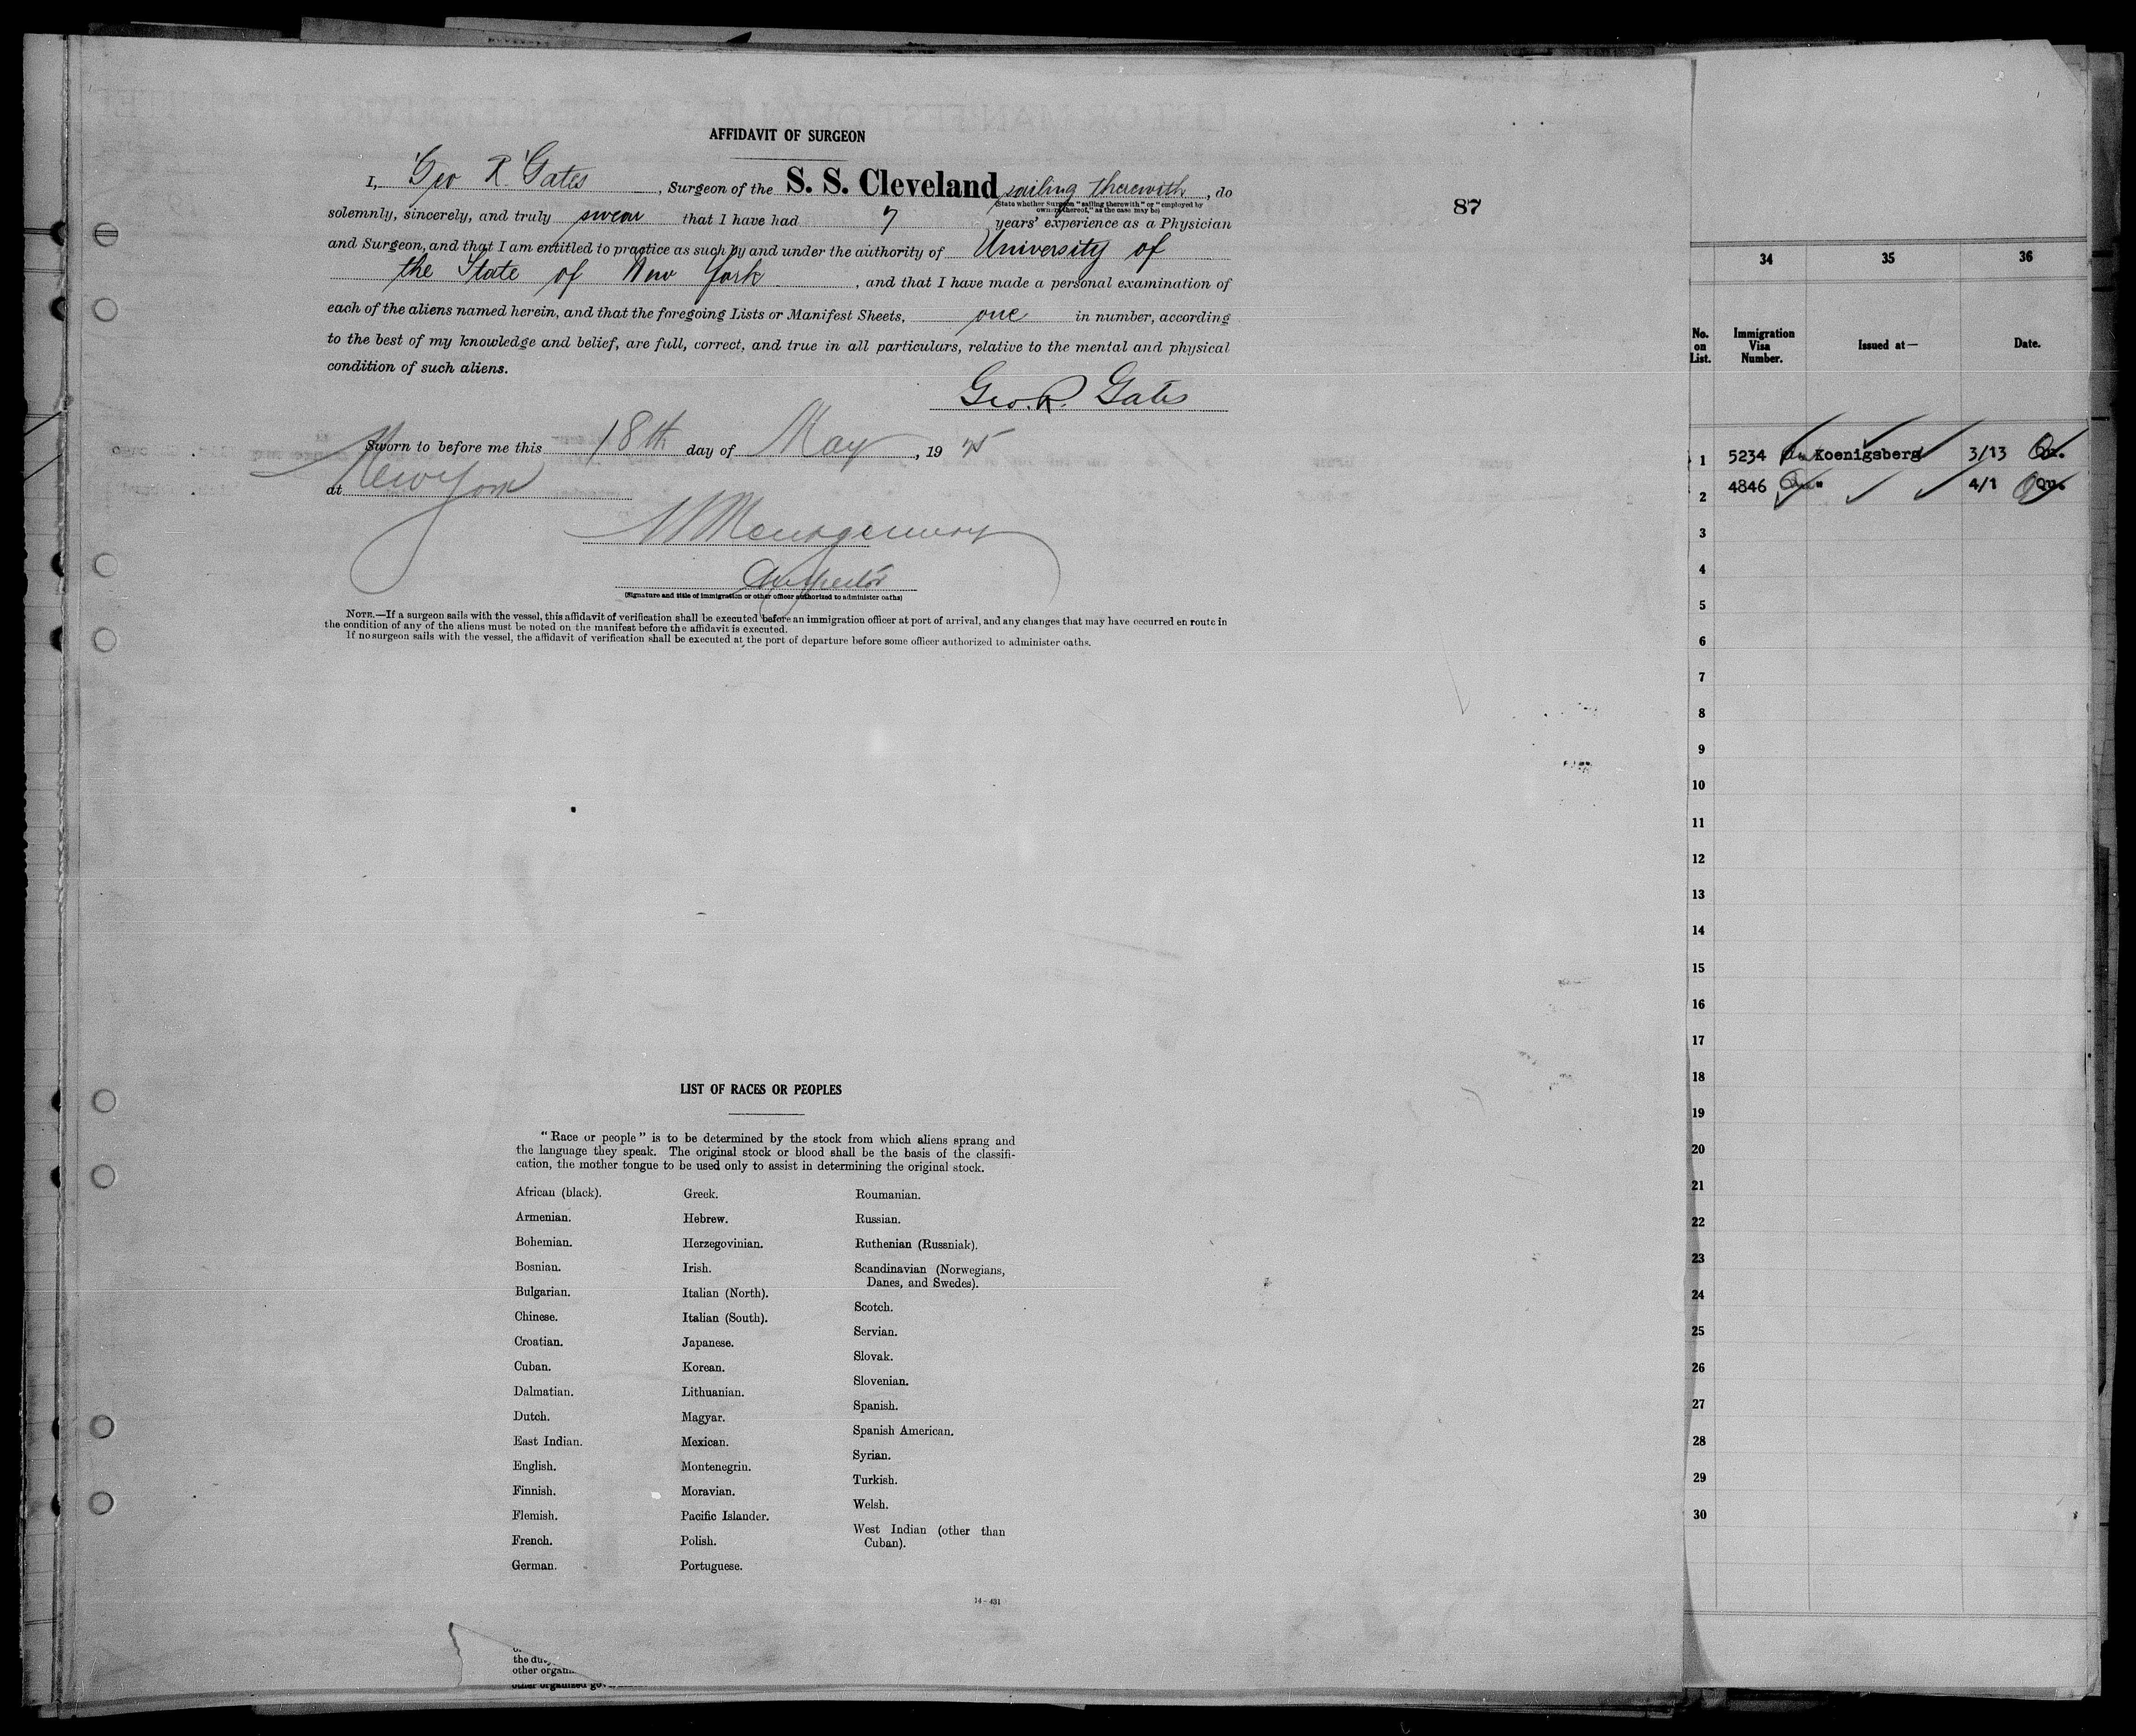 AFFIDAVIT OF SURGEON
I, Geo R. Gates, Surgeon of the S. S. Cleveland sailing therewith, do
(State whether Surgeon "sailing therewith" or "employed by
owners thereof," as the case may be)
solemnly, sincerely, and truly swear that I have had 7 years' experience as a Physician
and Surgeon, and that I am entitled to practice as such by and under the authority of University of
the State of New York, and that I have made a personal examination of
each of the aliens named herein, and that the foregoing Lists or Manifest Sheets, one in number, according
to the best of my knowledge and belief, are full, correct, and true in all particulars, relative to the mental and physical
condition of such aliens.
Geo. R. Gates
Sworn to before me this 18th day of May, 1925
at New York
Montgomery
Inspector
(Signature and title of immigration or other officer authorized to administer oaths)
NOTE.—If a surgeon sails with the vessel, this affidavit of verification shall be executed before an immigration officer at port of arrival, and any changes that may have occurred en route in
the condition of any of the aliens must be noted on the manifest before the affidavit is executed.
If no surgeon sails with the vessel, the affidavit of verification shall be executed at the port of departure before some officer authorized to administer oaths.
87
LIST OF RACES OR PEOPLES
"Race or people" is to be determined by the stock from which aliens sprang and
the language they speak. The original stock or blood shall be the basis of the classifi-
cation, the mother tongue to be used only to assist in determining the original stock.
African (black).
Armenian.
Bohemian.
Bosnian.
Bulgarian.
Chinese.
Croatian.
Cuban.
Dalmatian.
Dutch.
East Indian.
English.
Finnish.
Flemish.
French.
German.
Greek.
Hebrew.
Herzegovinian.
Irish.
Italian (North).
Italian (South).
Japanese.
Korean.
Lithuanian.
Magyar.
Mexican.
Montenegrin.
Moravian.
Pacific Islander.
Polish.
Portuguese.
Roumanian.
Russian.
Ruthenian (Russniak).
Scandinavian (Norwegians,
Danes, and Swedes).
Scotch.
Servian.
Slovak.
Slovenian.
Spanish.
Spanish American.
Syrian.
Turkish.
Welsh.
West Indian (other than
Cuban).
14-431
the du
other organ
other organized go
34 35 36
No. on List. Immigration Visa Number. Issued at— Date.
1 5234 Koenigsberg 3/13
2 4846 " 4/1
3
4
5
6
7
8
9
10
11
12
13
14
15
16
17
18
19
20
21
22
23
24
25
26
27
28
29
30